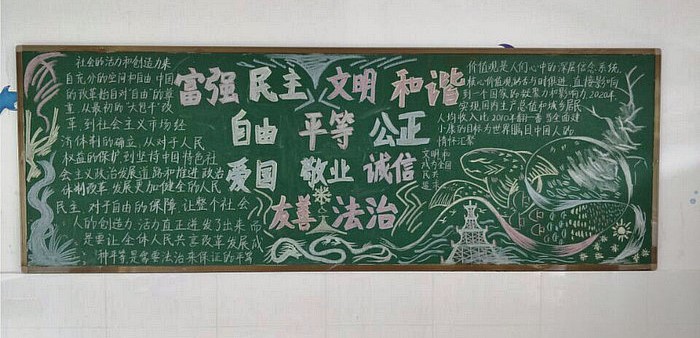 社会的活力和创造力来
自充分的空间和自由 中国
的改革起自对"自由"的尊
重 从最初的"大包干"改
革,到社会主义市场经
济体制的确立,从对于人民
权益的保护到坚持中国特色社
会主义政治发展道路和推进政治
体制改革 发展更加健全的人民
民主,对于自由的保障,让整个社会
人的创造力、活力真正迸发了出来 而
是要让全体人民共享改革发展成
种平等是需要法治来保证的平等
富强 民主 文明 和谐
自由 平等 公正
爱国 敬业 诚信
友善 法治
价值观是人们心中的深层信念系统,
核心价值观能否与时俱进,直接影响
到一个国家的凝聚力和影响力,2020年
实现国内生产总值和城乡居民
人均收入比2010年翻一番 当全面建
小康的目标为世界瞩目中国人的
情怀汇聚
文明和
为全国
民共